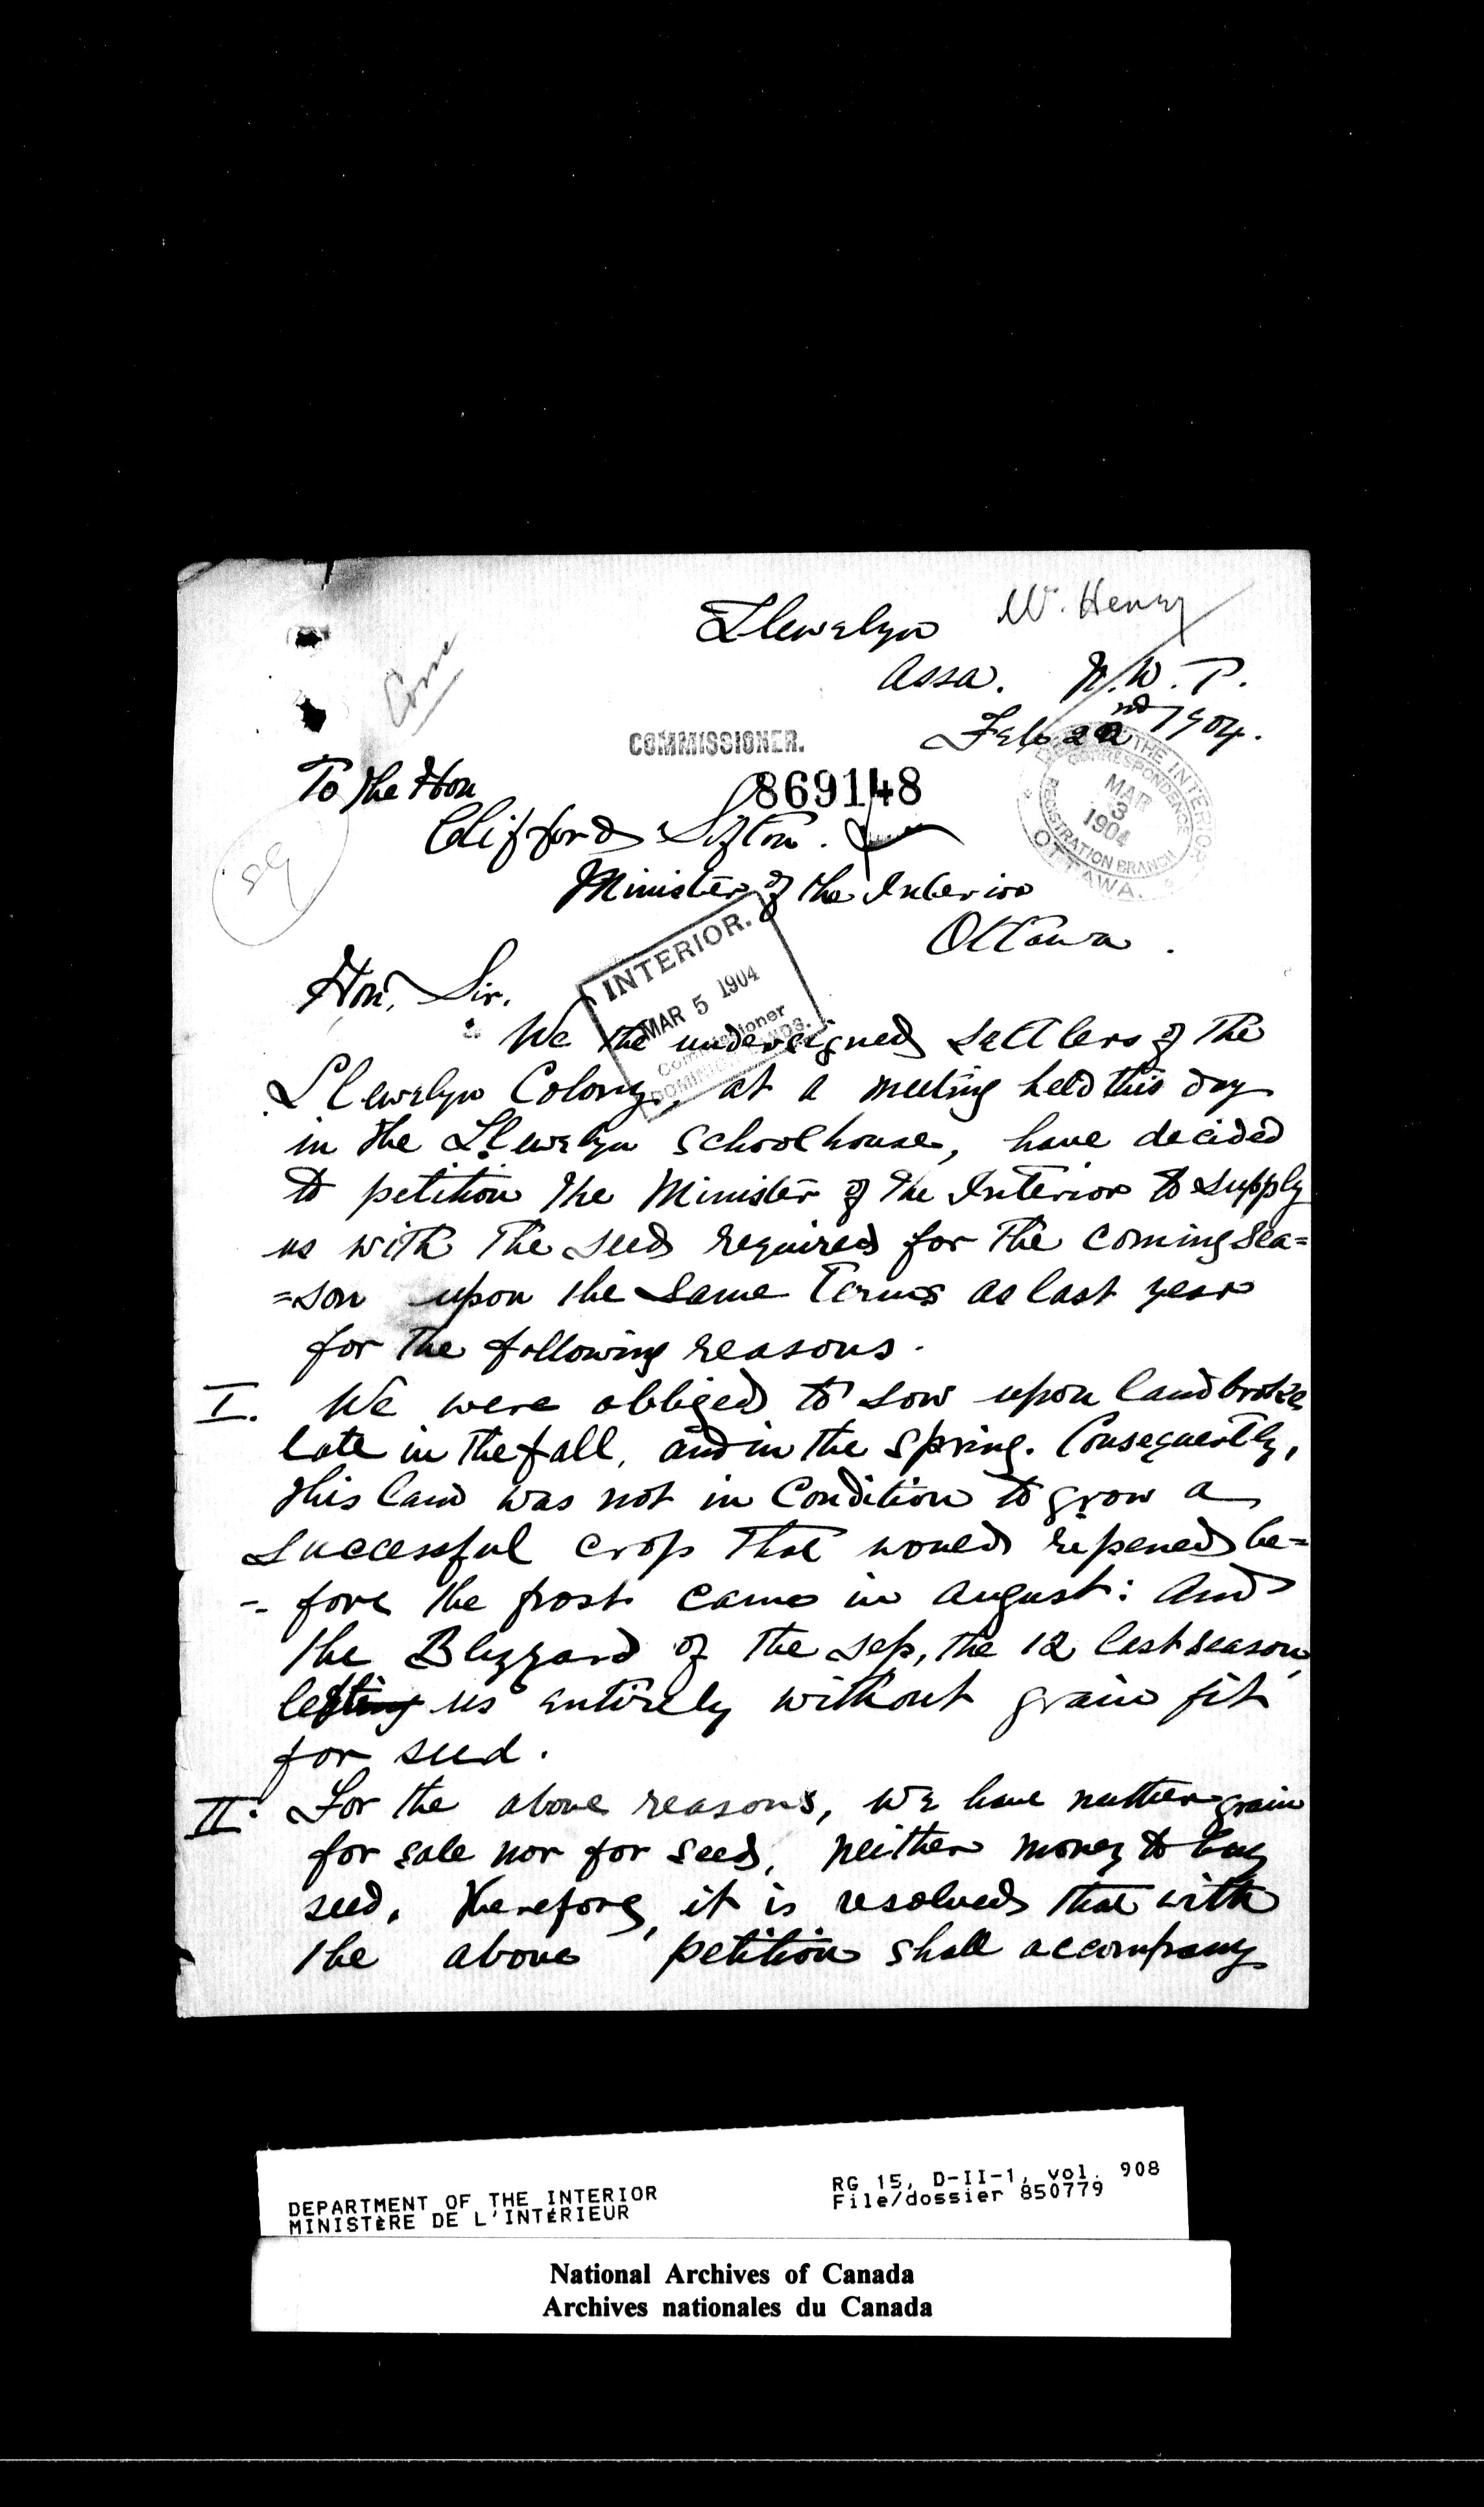 Llewelyn W. Henry
Assa. N.W.T.
Feb 22nd 1904.
Corre
COMMISSIONER.
To the Hon
869148
Clifford Sifton.
THE INTERIOR
CORRESPONDENCE
MAR
3
1904
REGISTRATION BRANCH
OTTAWA.
Minister of the Interior
Ottawa.
INTERIOR.
MAR 5 1904
Commissioner
DOMINION LANDS.
Hon. Sir.
We the undersigned settlers of the
Llewelyn Colony, at a meeting held this day
in the Llewelyn schoolhouse, have decided
to petition the Minister of the Interior to supply
us with the seed required for the coming sea=
=son upon the same terms as last year
for the following reasons.
I. We were obliged to sow upon land broke
late in the fall, and in the spring. Consequently,
this land was not in Condition to grow a
successful crop that would ripened be=
= fore the frost came in August: And
the Blizzard of the Sep, the 12 last season,
lefting us entirely without grain fit
for seed.
II. For the above reasons, we have neither grain
for sale nor for seed, neither money to buy
seed. Therefore, it is resolved that with
the above petition shall accompany
DEPARTMENT OF THE INTERIOR
MINISTÈRE DE L'INTÉRIEUR
RG 15, D-II-1, vol. 908
File/dossier 850779
National Archives of Canada
Archives nationales du Canada